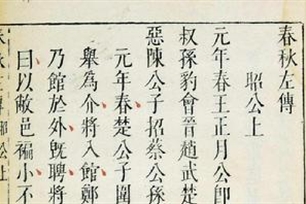 春秋左傳
昭公上
元年春王正月公卽
叔孫豹會晉趙武楚
惡陳公子招蔡公孫
元年春楚公子圍
舉為介將入館鄭
乃館於外既聘將
曰以敝邑褊小不